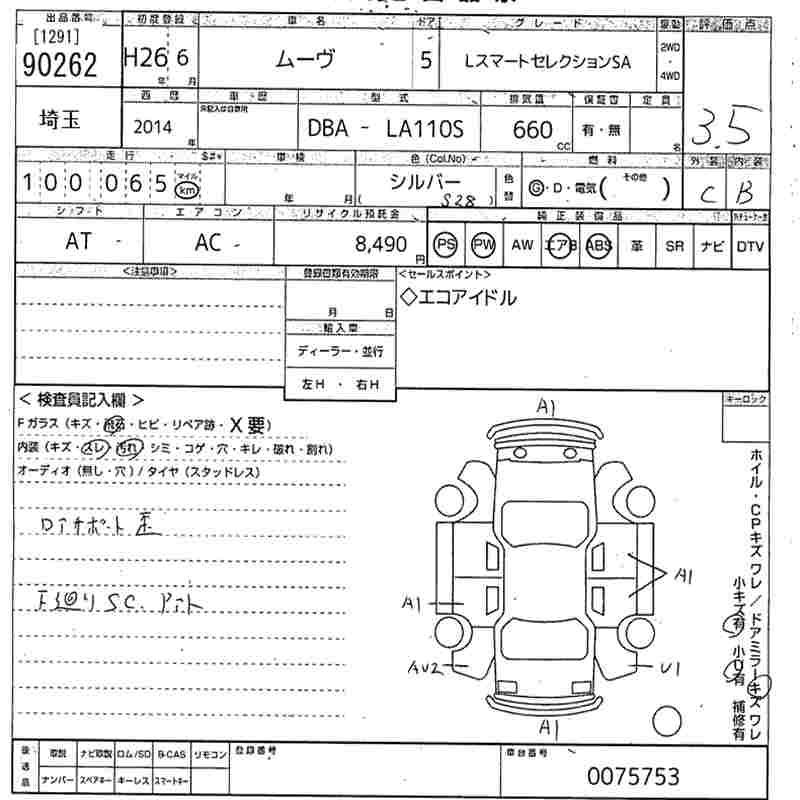 出品番号 初度登録 車名 ドア グレード 駆動 評価点
[1291]
90262 H26 6 ムーヴ 5 LスマートセレクションSA 2WD・4WD 3.5
年 月
西暦 車歴 型式 排気量 保証書 定員
埼玉 2014 年 DBA - LA110S 660 CC 有・無 名
走行 車検 色(Col.No) 燃料 外装 内装
100065 マイル km 年 月 シルバー ( S28 ) 色替 G・D・電気( その他 ) C B
シフト エアコン リサイクル預託金 純正装備品
AT - AC - 8,490 円 PS PW AW エアB ABS 革 SR ナビ DTV
<注意事項> 登録書類有効期限 <セールスポイント>
月 日 ◇エコアイドル
輸入車
ディーラー・並行
左H・右H
<検査員記入欄> キーロック
Fガラス(キズ・飛石・ヒビ・リペア跡・X要)
内装(キズ・スレ・汚れ・シミ・コゲ・穴・キレ・破れ・割れ)
オーディオ(無し・穴)/タイヤ(スタッドレス)
A1
A1
A1
AU2 U1
A1
下廻りSC.
ホイル・CPキズワレ/ドアミラーキズワレ
小キズ有 小U有 補修有
後送品 取説 ナビ取説 ロム/SD B-CAS リモコン 登録番号 車台番号
ナンバー スペアキー キーレス スマートキー 0075753